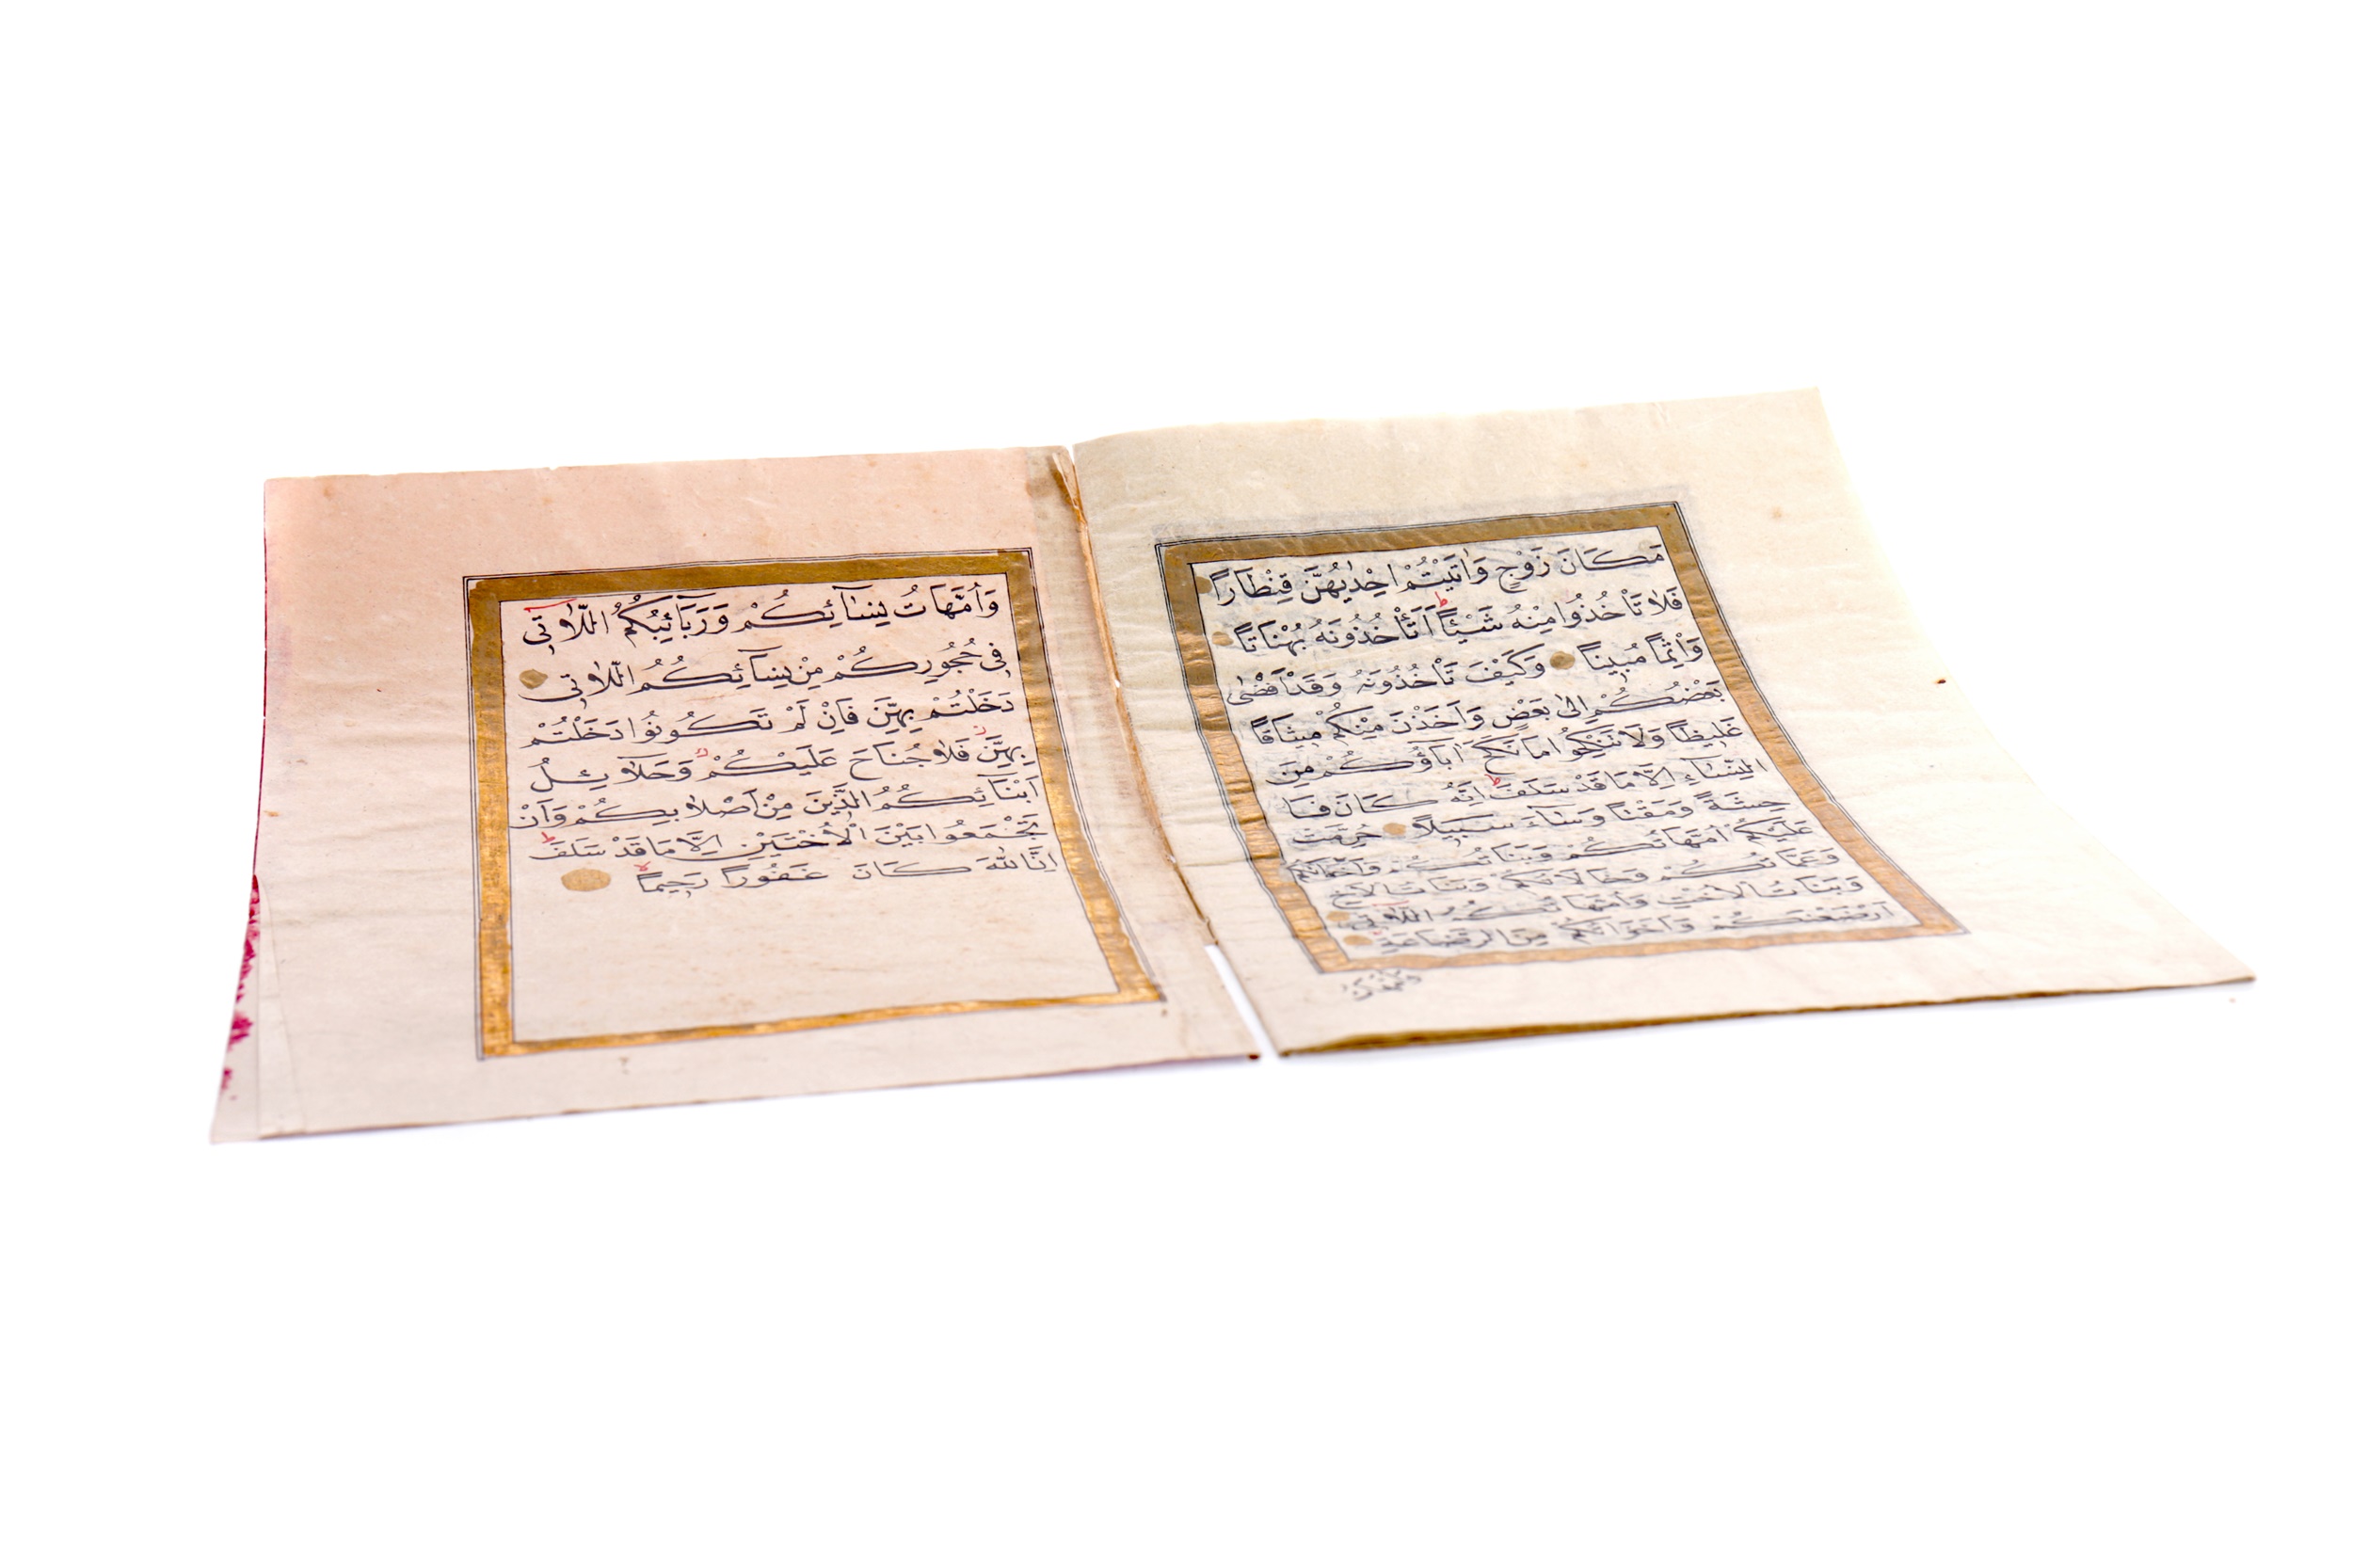 مَكَانَ زَوْجٍ وَاٰتَيْتُمْ اِحْدٰيهُنَّ قِنْطَارًا
فَلَا تَأْخُذُوا مِنْهُ شَيْئًا ط اَتَأْخُذُونَهُ بُهْتَانًا
وَاِثْمًا مُبِينًا وَكَيْفَ تَأْخُذُونَهُ وَقَدْ اَفْضٰى
بَعْضُكُمْ اِلٰى بَعْضٍ وَاَخَذْنَ مِنْكُمْ مِيثَاقًا
غَلِيظًا وَلَا تَنْكِحُوا مَا نَكَحَ اٰبَاؤُكُمْ مِنَ
النِّسَاءِ اِلَّا مَا قَدْ سَلَفَ ط اِنَّهُ كَانَ فَا
حِشَةً وَمَقْتًا وَسَاءَ سَبِيلًا حُرِّمَتْ
عَلَيْكُمْ اُمَّهَاتُكُمْ وَبَنَاتُكُمْ وَاَخَوَاتُكُمْ
وَعَمَّاتُكُمْ وَخَالَاتُكُمْ وَبَنَاتُ الْاَخِ
وَبَنَاتُ الْاُخْتِ وَاُمَّهَاتُكُمُ اللَّاتِي
اَرْضَعْنَكُمْ وَاَخَوَاتُكُمْ مِنَ الرَّضَاعَةِ
وَاُمَّهَاتُ نِسَآئِكُمْ وَرَبَآئِبُكُمُ اللَّاتِي
فِي حُجُورِكُمْ مِنْ نِسَآئِكُمُ اللَّاتِي
دَخَلْتُمْ بِهِنَّ فَاِنْ لَمْ تَكُونُوا دَخَلْتُمْ
بِهِنَّ فَلَا جُنَاحَ عَلَيْكُمْ وَحَلَآئِلُ
اَبْنَآئِكُمُ الَّذِينَ مِنْ اَصْلَابِكُمْ وَاَنْ
تَجْمَعُوا بَيْنَ الْاُخْتَيْنِ اِلَّا مَا قَدْ سَلَفَ ط
اِنَّ اللّٰهَ كَانَ غَفُورًا رَحِيمًا